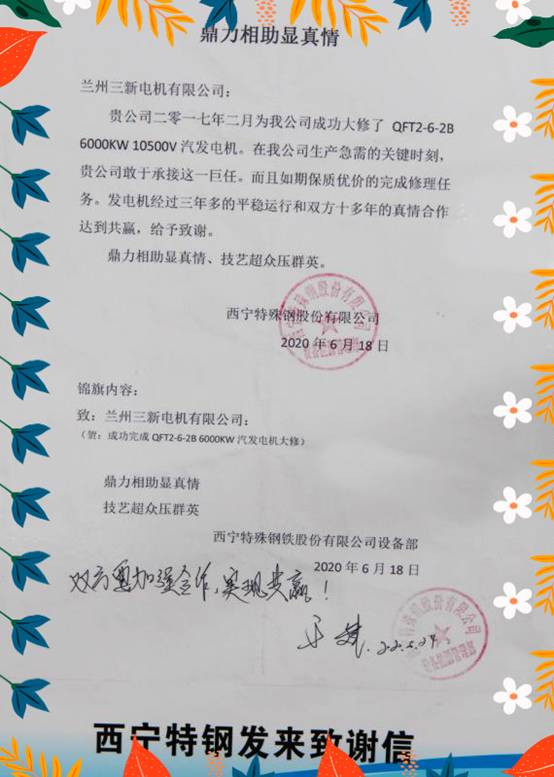 鼎力相助显真情
兰州三新电机有限公司：
贵公司二零一七年二月为我公司成功大修了 QFT2-6-2B
6000KW 10500V 汽发电机。在我公司生产急需的关键时刻，
贵公司敢于承接这一巨任。而且如期保质优价的完成修理任
务。发电机经过三年多的平稳运行和双方十多年的真情合作
达到共赢，给予致谢。
鼎力相助显真情、技艺超众压群英。
西宁特殊钢股份有限公司
2020 年 6 月 18 日
锦旗内容：
致：兰州三新电机有限公司：
（贺：成功完成 QFT2-6-2B 6000KW 汽发电机大修）
鼎力相助显真情
技艺超众压群英
西宁特殊钢铁股份有限公司设备部
2020 年 6 月 18 日
双方要加强合作，实现共赢！
西宁特钢发来致谢信